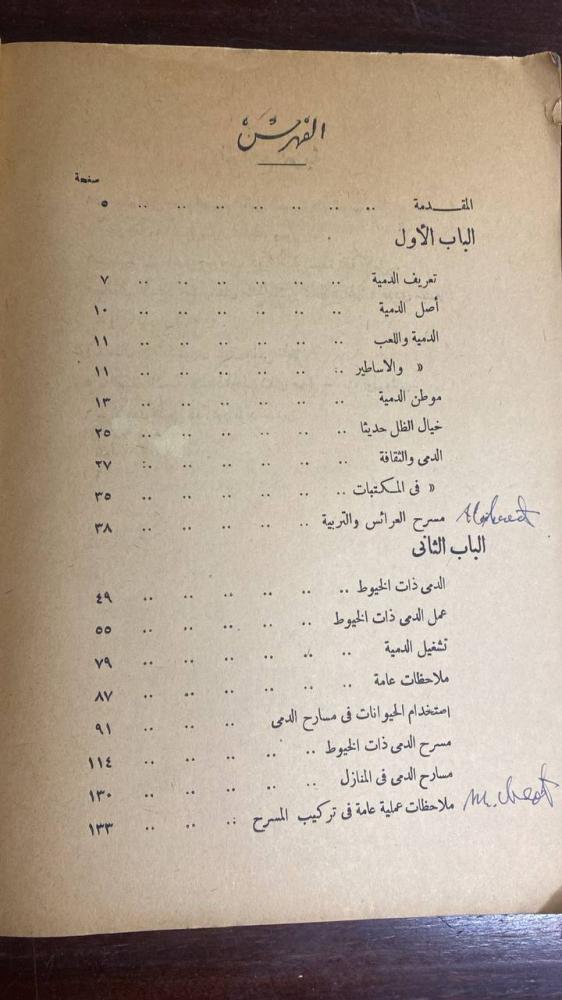 الفهرس
صفحة
المقدمة .. .. .. .. .. .. .. ٥
الباب الأول
تعريف الدمية .. .. .. .. .. .. ٧
أصل الدمية .. .. .. .. .. .. ١٠
الدمية واللعب .. .. .. .. .. .. ١١
« والاساطير .. .. .. .. .. .. ١١
موطن الدمية .. .. .. .. .. .. ١٣
خيال الظل حديثا .. .. .. .. .. .. ٢٥
الدمى والثقافة .. .. .. .. .. .. ٢٧
« فى المكتبات .. .. .. .. .. .. ٣٥
مسرح العرائس والتربية .. .. .. .. .. ٣٨
الباب الثانى
الدمى ذات الخيوط .. .. .. .. .. .. ٤٩
عمل الدمى ذات الخيوط .. .. .. .. .. .. ٥٥
تشغيل الدمية .. .. .. .. .. .. ٧٩
ملاحظات عامة .. .. .. .. .. .. ٨٧
استخدام الحيوانات فى مسارح الدمى .. .. .. .. ٩١
مسرح الدمى ذات الخيوط .. .. .. .. .. .. ١١٤
مسارح الدمى فى المنازل .. .. .. .. .. .. ١٣٠
ملاحظات عملية عامة فى تركيب المسرح .. .. .. ١٣٣